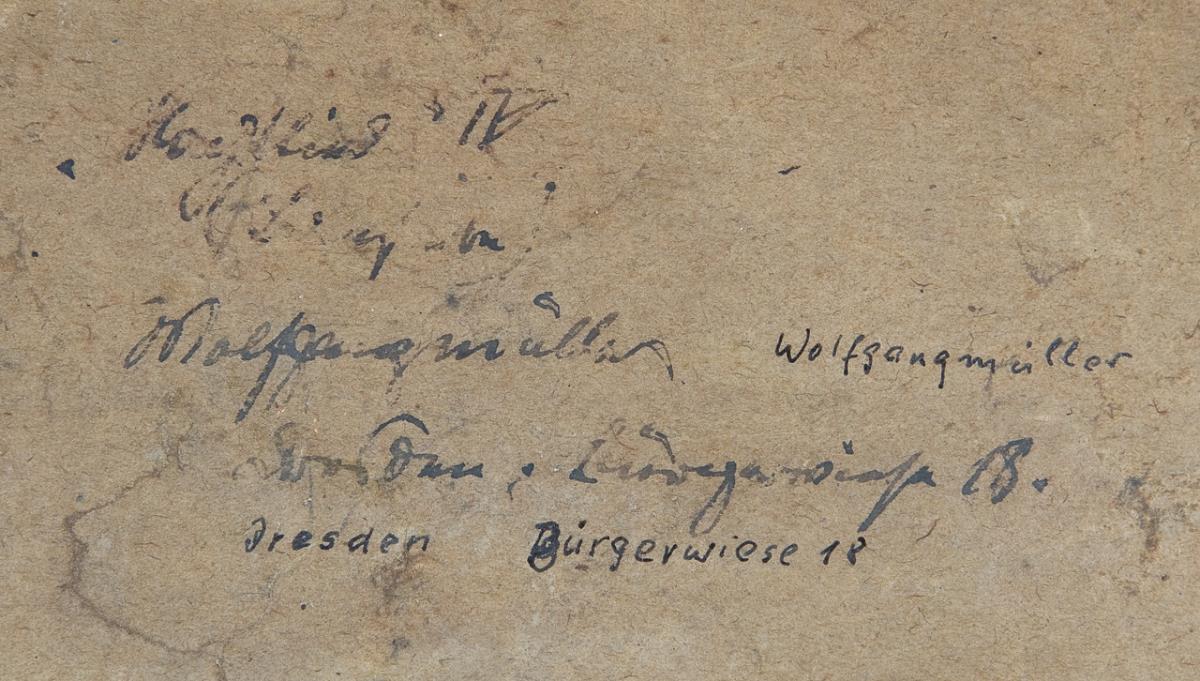 IV
Wolfgangmüller Wolfgangmüller
Dresden, Bürgerwiese 18.
Dresden Bürgerwiese 18